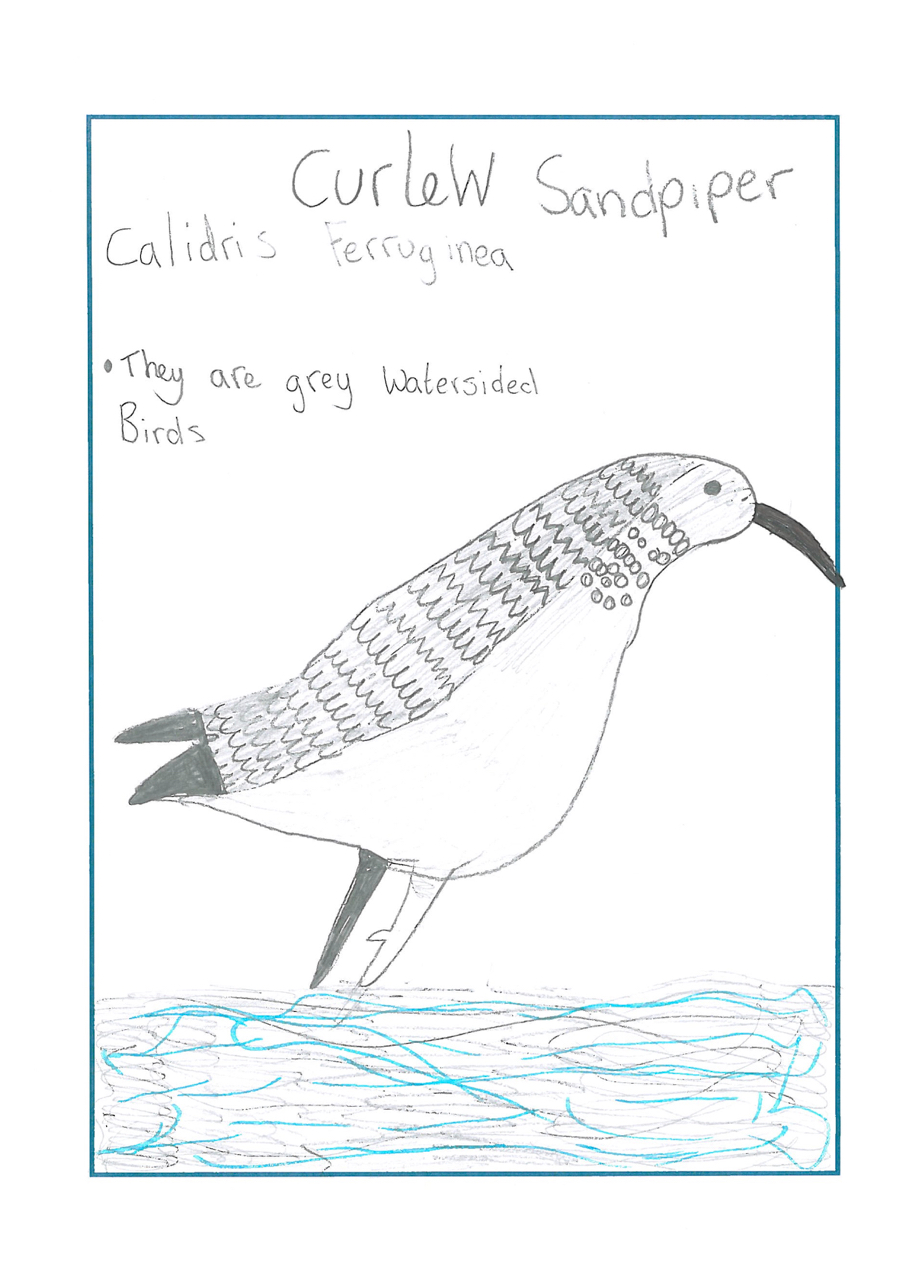 Curlew Sandpiper
Calidris Ferruginea
• They are grey Watersided
Birds